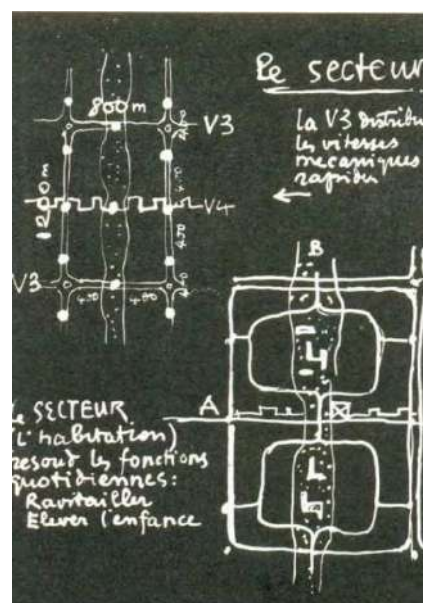 Le secteur
800 m
V3
la V3 distribu
les vitesses
mecaniques
rapides
1200 m
400
V4
400
V3
400
400
B
Le SECTEUR
A
(l'habitation)
resout les fonctions
quotidiennes:
Ravitailler
Elever l'enfance